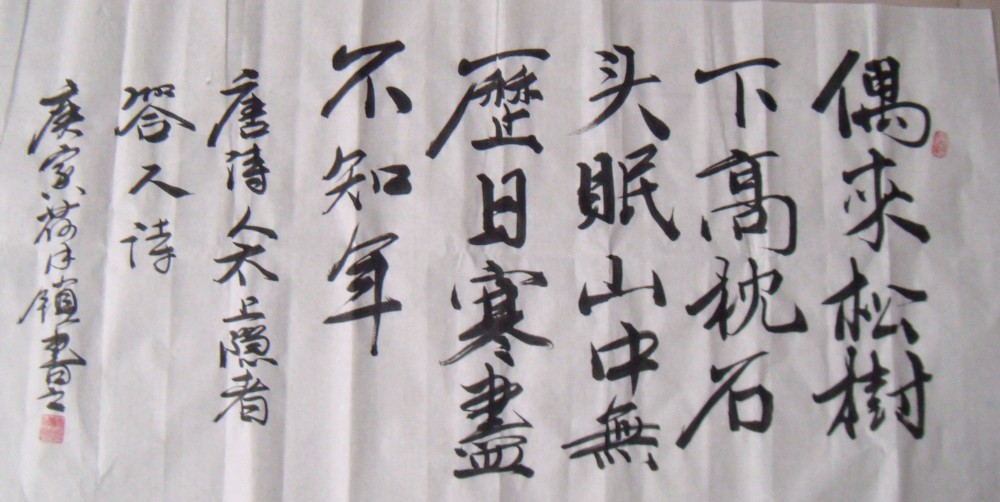 偶來松樹
下高枕石
头眠山中無
歷日寒盡
不知年
唐诗人太上隐者
答人詩
书之